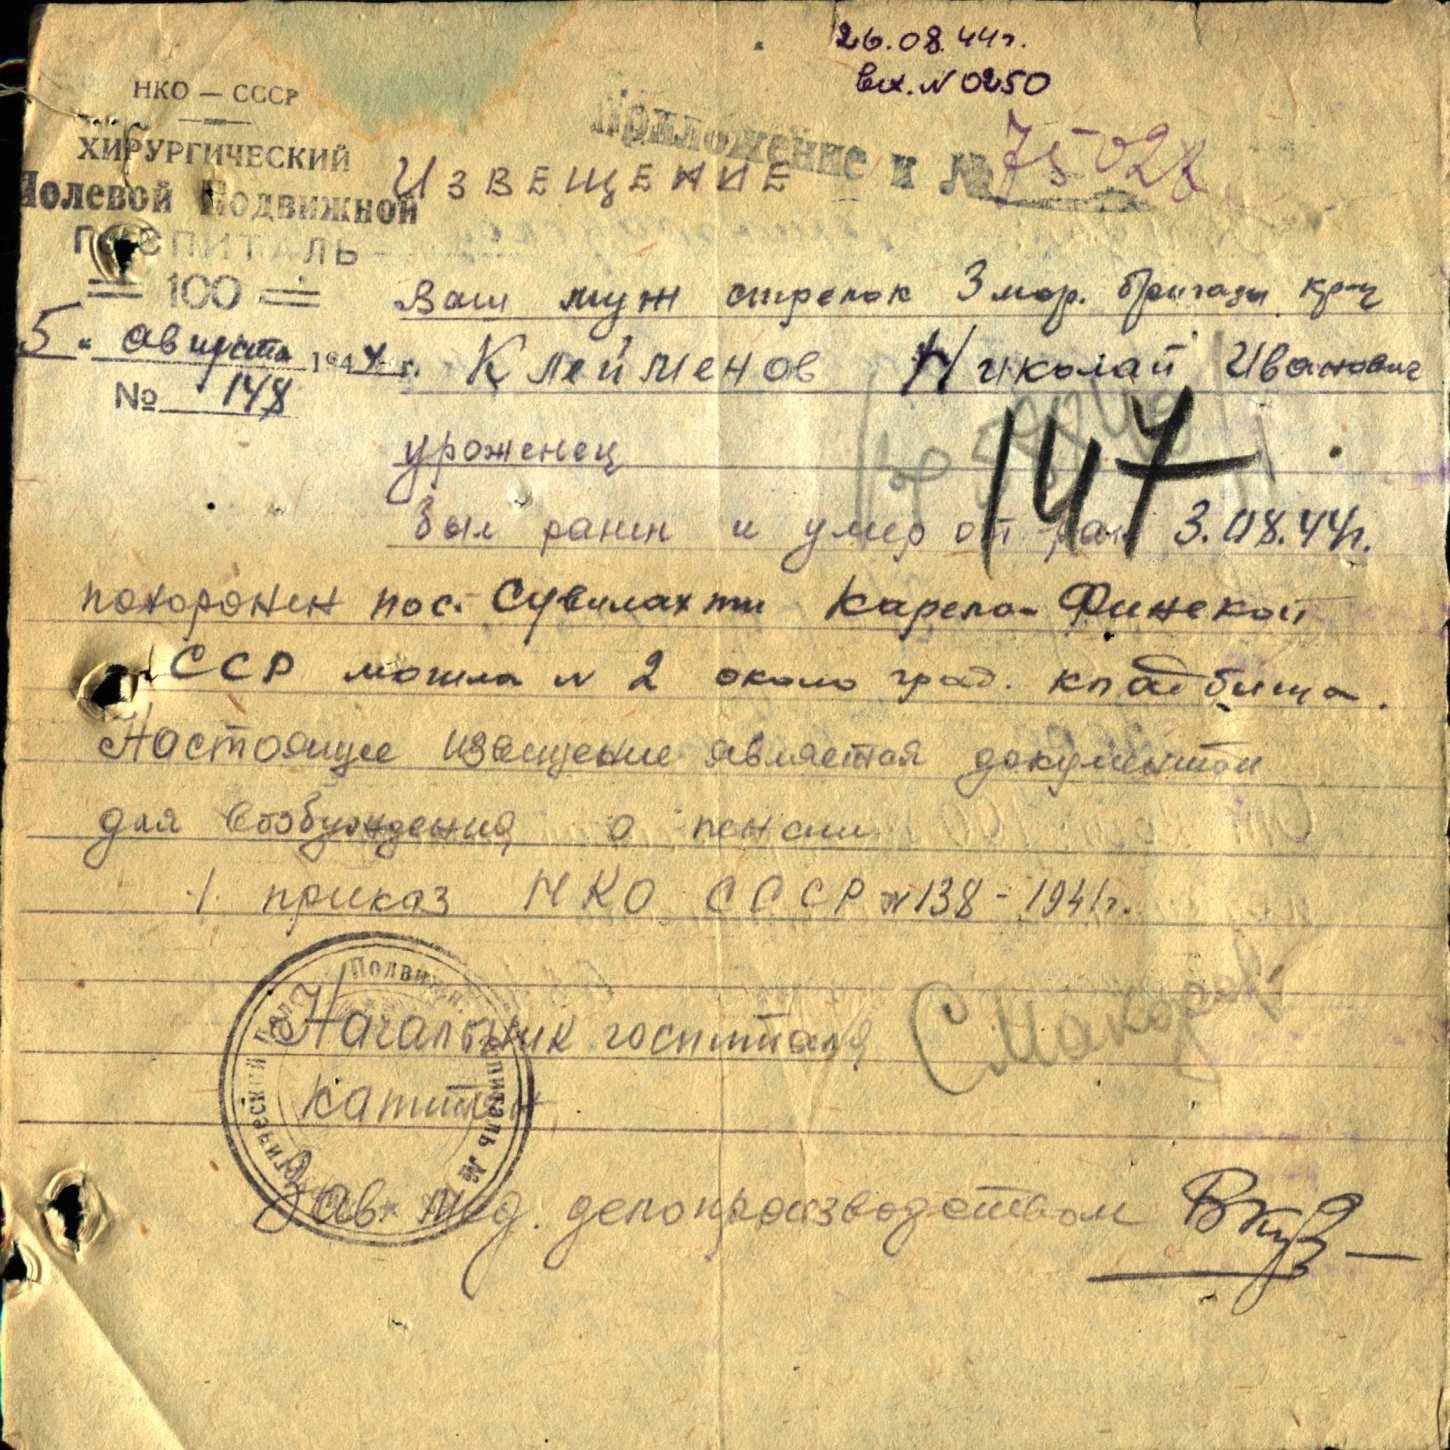 26.08.44г.
вх. N 0250
НКО — СССР
Приложение к № 75028
ХИРУРГИЧЕСКИЙ
Полевой Подвижной
ГОСПИТАЛЬ
100
ИЗВЕЩЕНИЕ
5 " августа 1944 г.
№ 148
Ваш муж стрелок 3 мор. бригады кр-ц
Клейменов Николай Иванович
147
уроженец
был ранен и умер от ран 3.08.44г.
похоронен пос. Сувилахти Карело-Финской
ССР могила N 2 около град. кладбища.
Настоящее извещение является документом
для возбуждения о пенсии
приказ НКО СССР N 138 - 1941г.
Начальник госпиталя
капитан
СМакаров
Зав. мед. делопроизводством